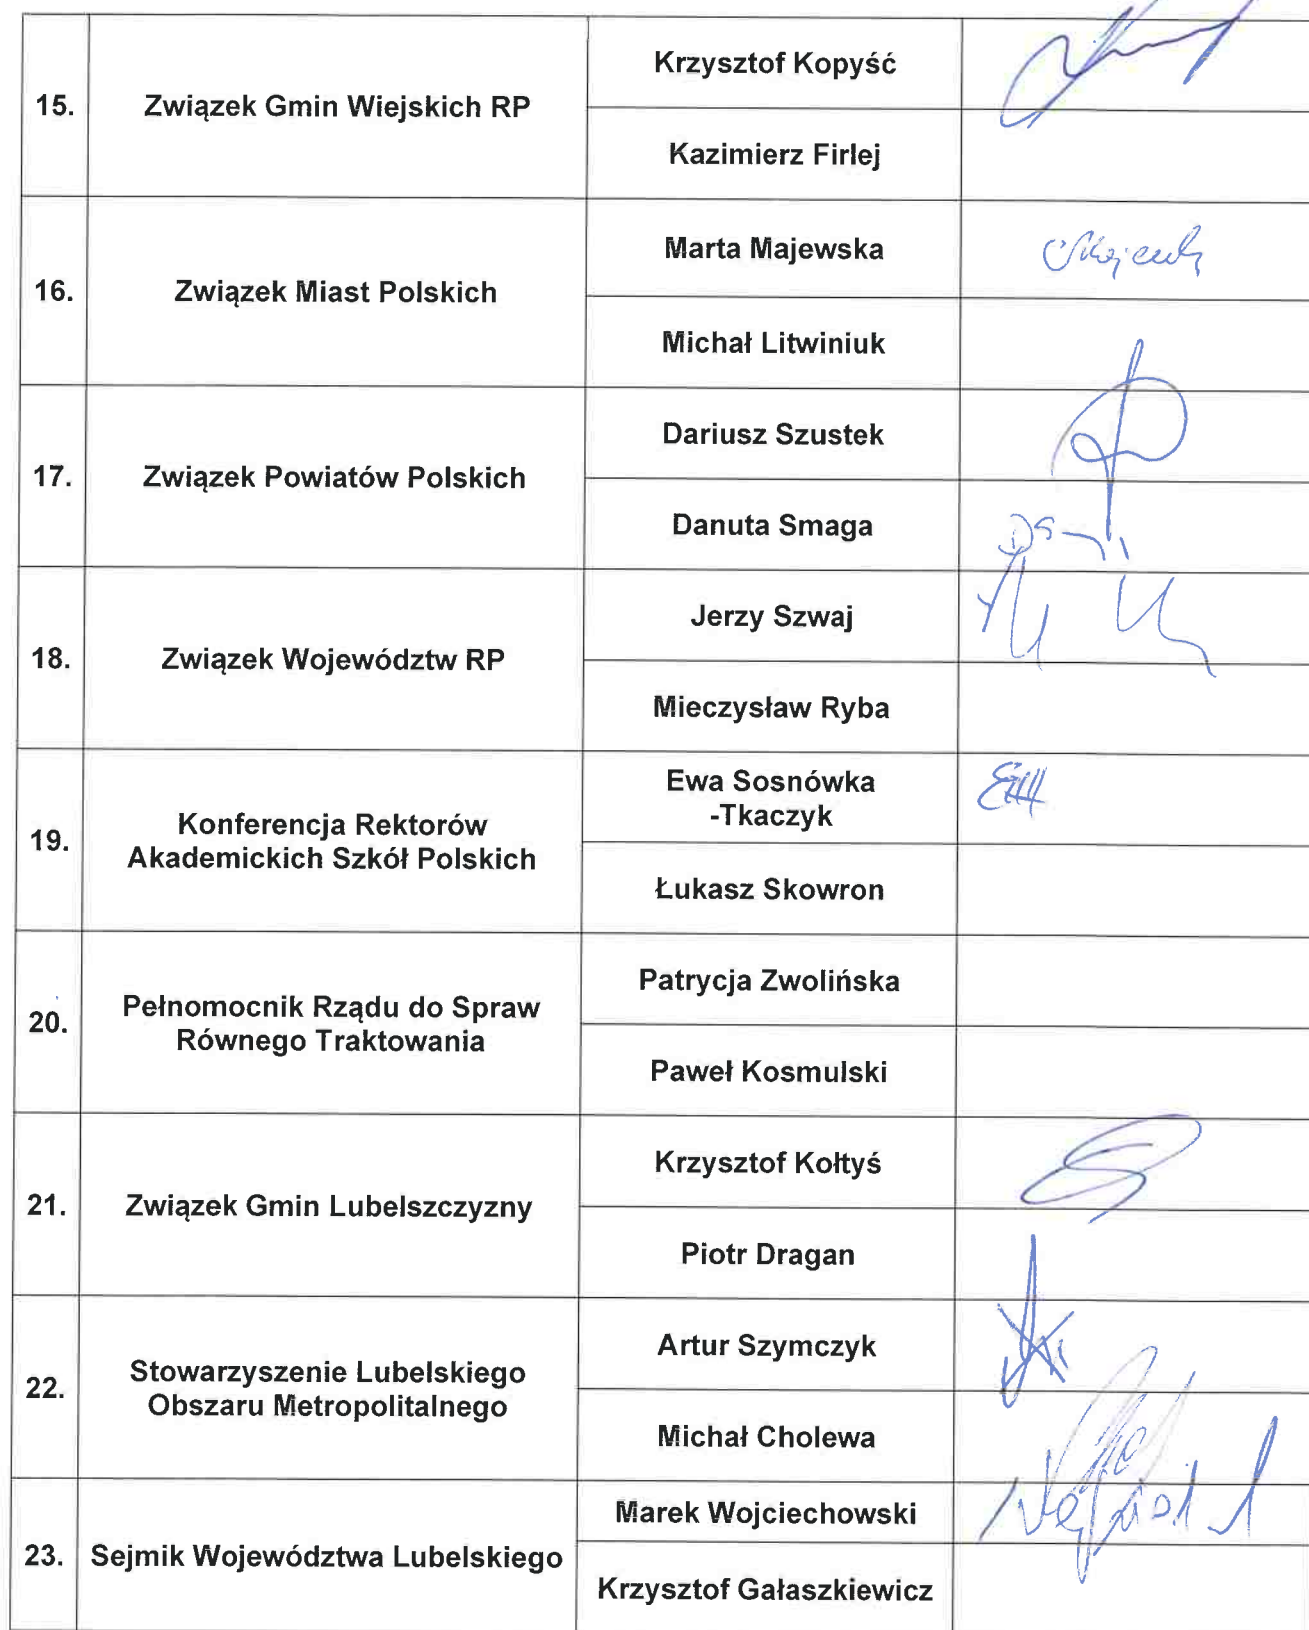 15.
Związek Gmin Wiejskich RP
Krzysztof Kopyść
Kazimierz Firlej
16.
Związek Miast Polskich
Marta Majewska
Michał Litwiniuk
17.
Związek Powiatów Polskich
Dariusz Szustek
Danuta Smaga
18.
Związek Województw RP
Jerzy Szwaj
Mieczysław Ryba
19.
Konferencja Rektorów
Akademickich Szkół Polskich
Ewa Sosnówka
-Tkaczyk
Łukasz Skowron
20.
Pełnomocnik Rządu do Spraw
Równego Traktowania
Patrycja Zwolińska
Paweł Kosmulski
21.
Związek Gmin Lubelszczyzny
Krzysztof Kołtyś
Piotr Dragan
22.
Stowarzyszenie Lubelskiego
Obszaru Metropolitalnego
Artur Szymczyk
Michał Cholewa
23.
Sejmik Województwa Lubelskiego
Marek Wojciechowski
Krzysztof Gałaszkiewicz